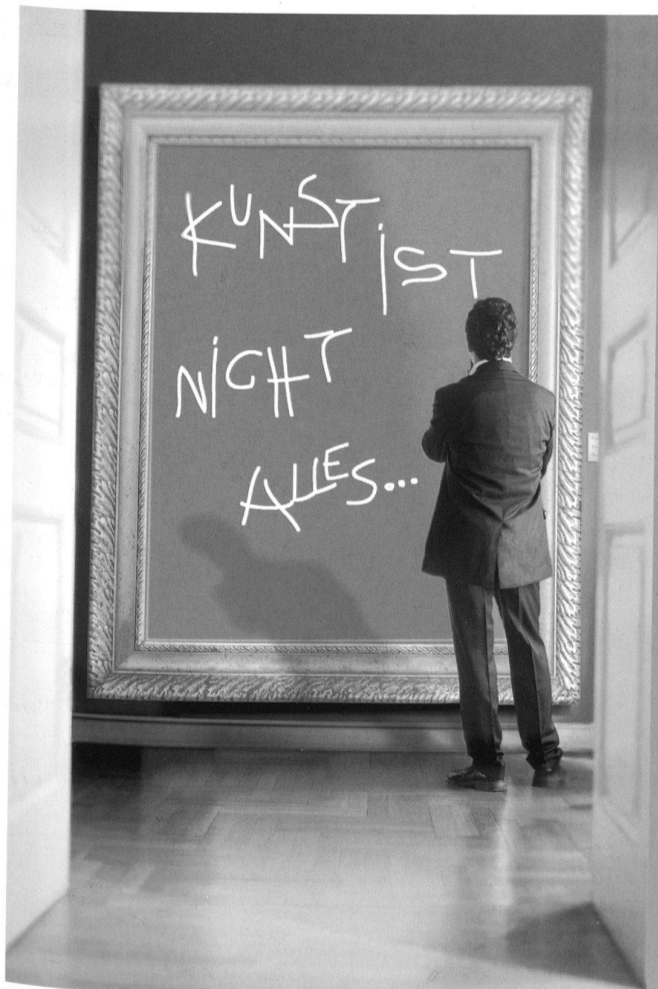 KUNST iST
NiCHT
ALLES...